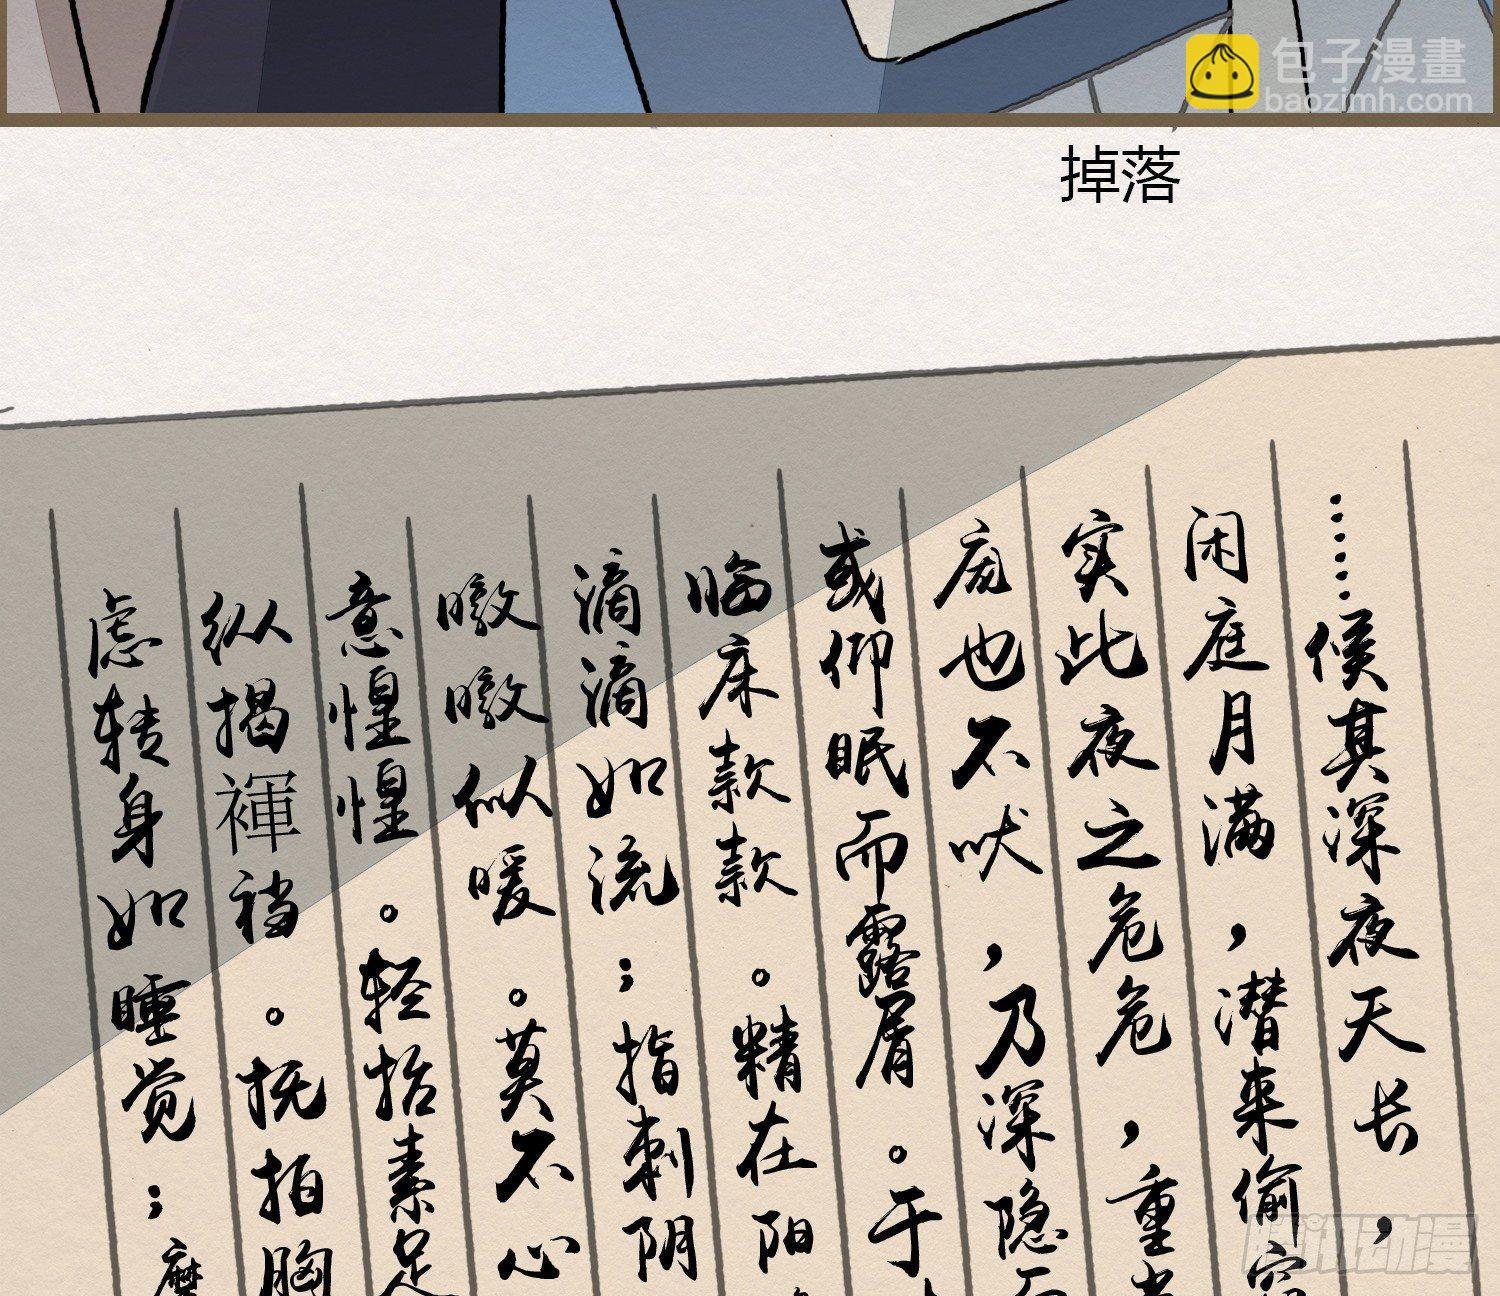 包子漫畫
baozimh.com
掉落
……候其深夜天长，
闲庭月满，潜来偷
实此夜之危危，重
厐也不吠，乃深隐
或仰眠而露屑。于
临床款款。精在阳
滴滴如流；指刺阴
暾暾似暖。莫不心
意惶惶。轻抬素足
纵揭褌裆。抚拍胸
虑转身如睡觉；
腾讯动漫